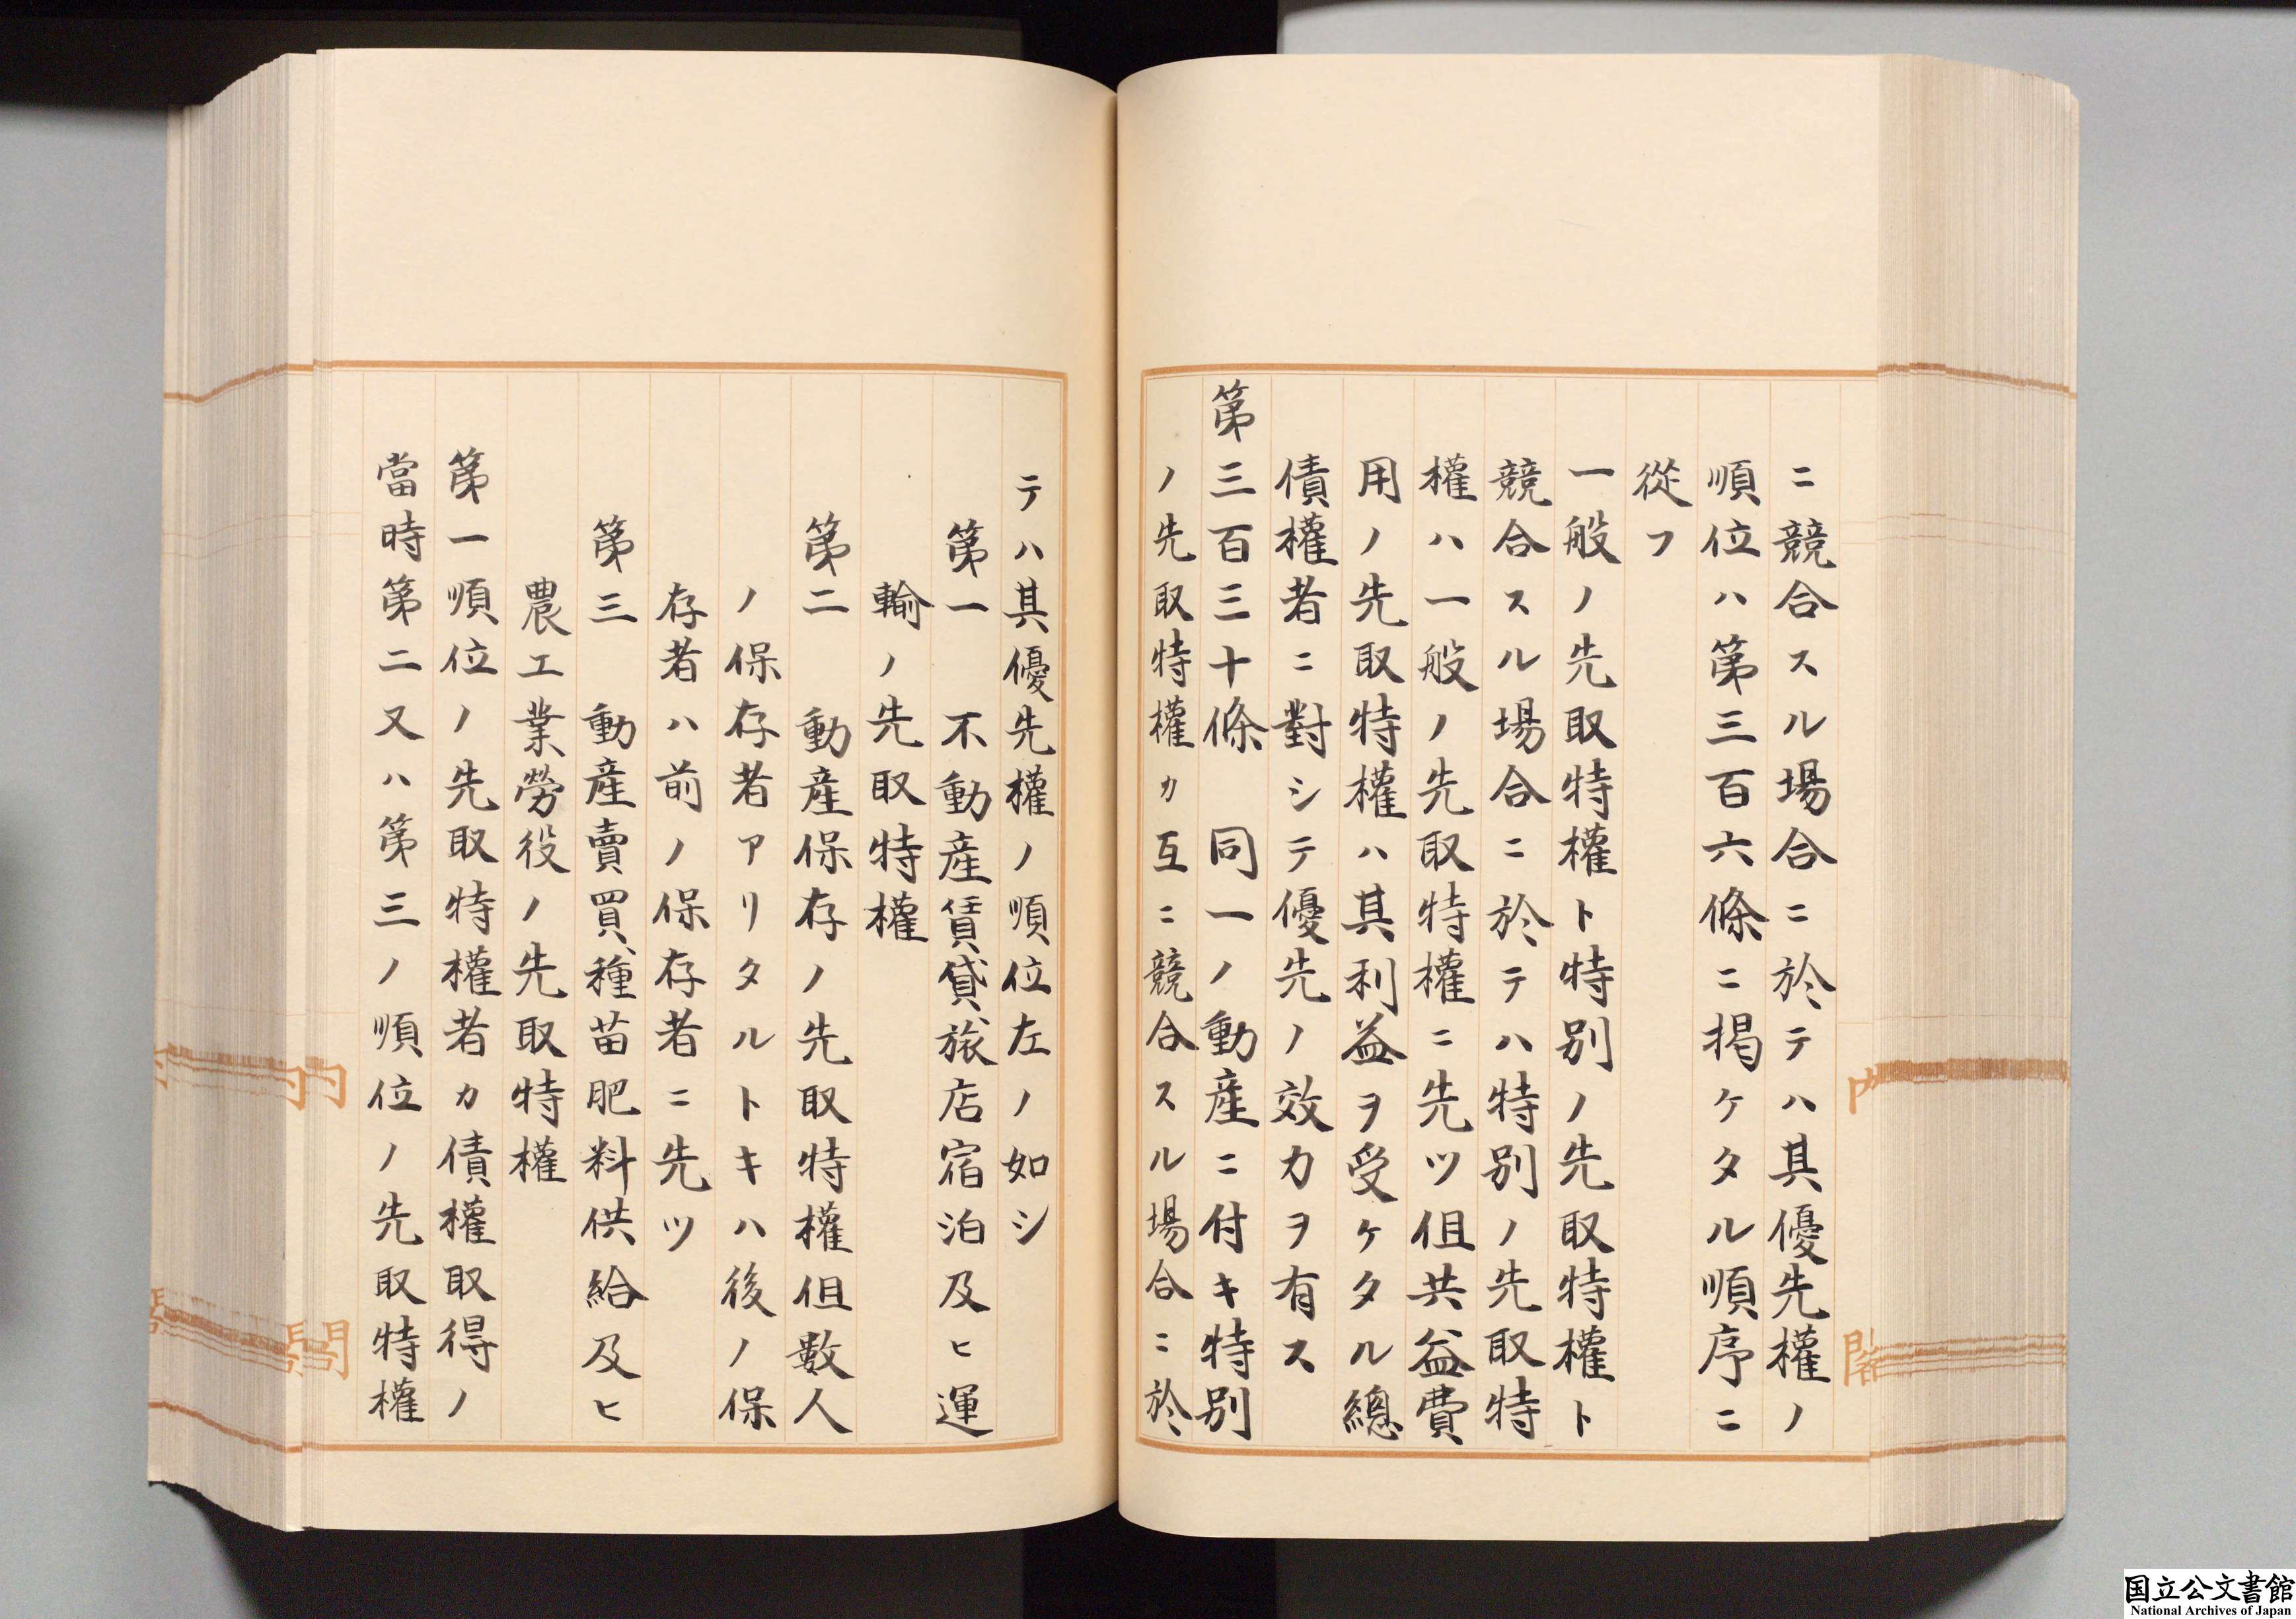 ニ競合スル場合ニ於テハ其優先權ノ
順位ハ第三百六條ニ掲ケタル順序ニ
從フ
一般ノ先取特權ト特別ノ先取特權ト
競合スル場合ニ於テハ特別ノ先取特
權ハ一般ノ先取特權ニ先ツ但共益費
用ノ先取特權ハ其利益ヲ受ケタル總
債權者ニ對シテ優先ノ效力ヲ有ス
第三百三十條 同一ノ動產ニ付キ特別
ノ先取特權カ互ニ競合スル場合ニ於
テハ其優先權ノ順位左ノ如シ
第一 不動產賃貸旅店宿泊及ヒ運
輸ノ先取特權
第二 動產保存ノ先取特權但數人
ノ保存者アリタルトキハ後ノ保
存者ハ前ノ保存者ニ先ツ
第三 動產賣買、種苗肥料供給及ヒ
農工業勞役ノ先取特權
第一順位ノ先取特權者カ債權取得ノ
當時第二又ハ第三ノ順位ノ先取特權
内閣
国立公文書館
National Archives of Japan